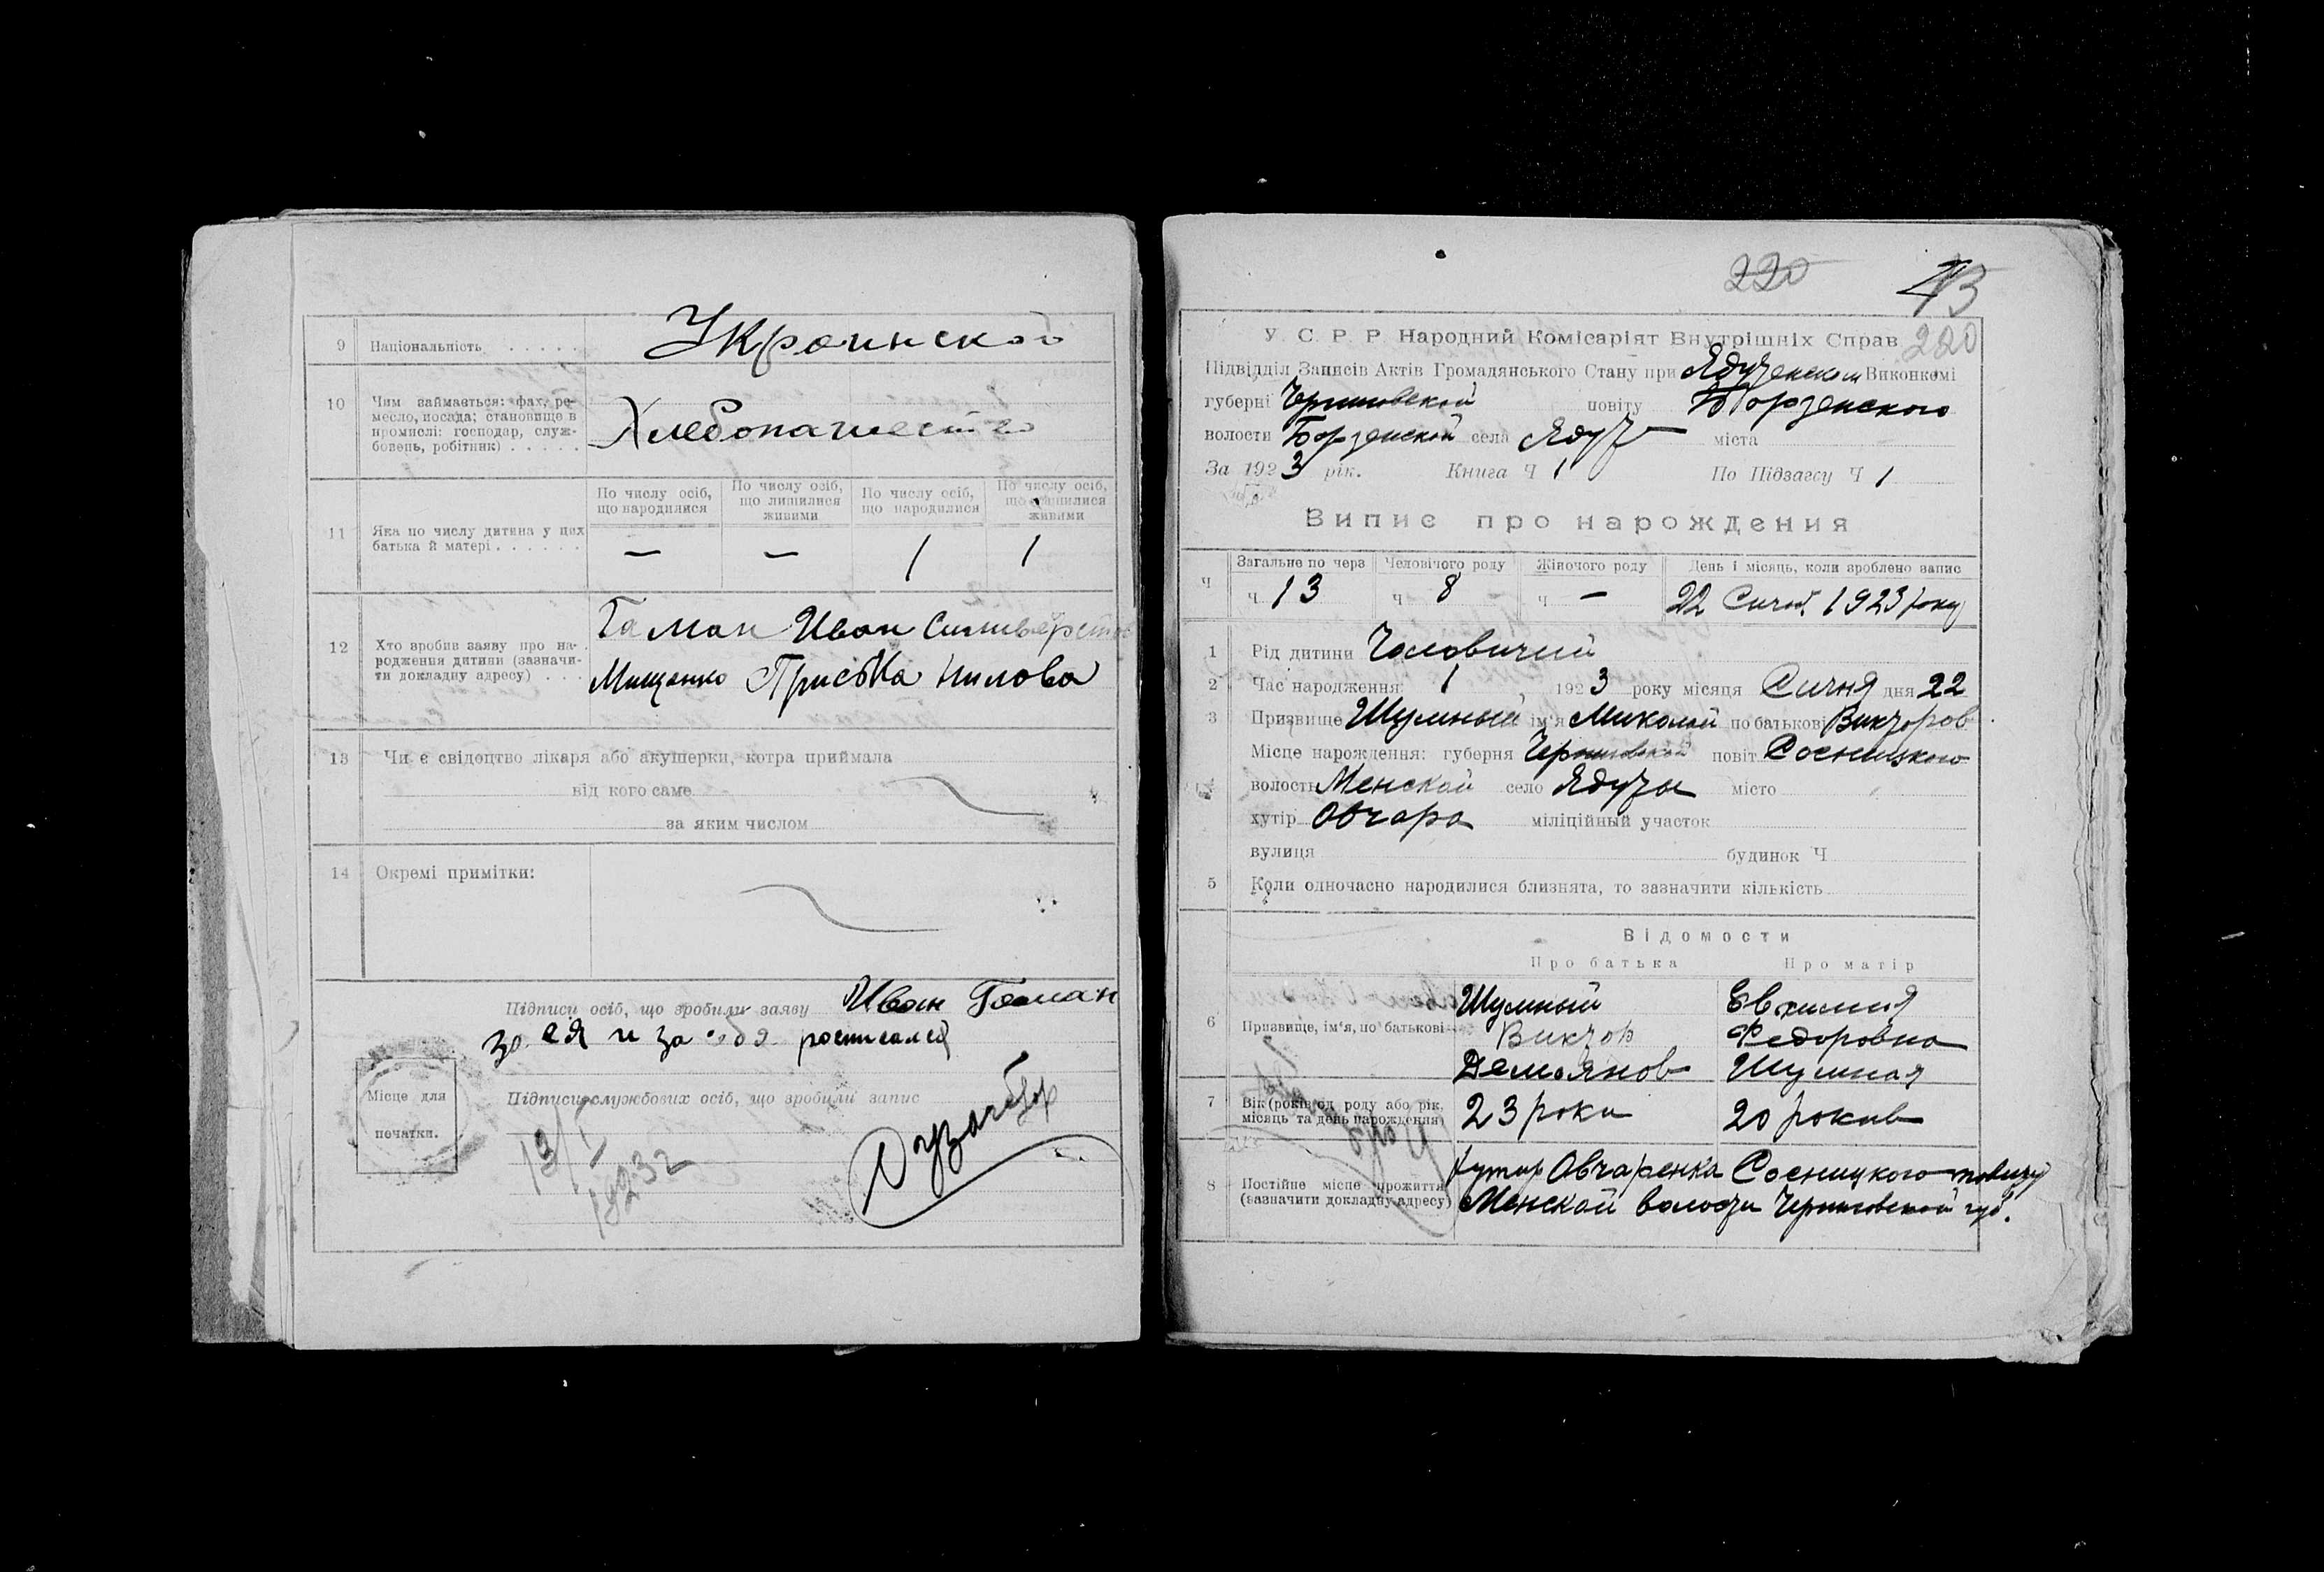 9 Національність . . . . . Украинской
10 Чим займається: фах, ре-
месло, посада; становище в
промислі: господар, служ-
бовець, робітник) . . . . .
Хлебопашество
11 Яка по числу дитина у цих
батька й матері . . . . . .
По числу осіб, що народилися
По числу осіб, що лишилися живими
По числу осіб, що народилися
По числу осіб, що лишилися живими
— — 1 1
12 Хто зробив заяву про на-
родження дитини (зазначи-
ти докладну адресу) . . .
Гаман Иван
Мищенко Приська Нилова
13 Чи є свідоцтво лікаря або акушерки, котра приймала
від кого саме
за яким числом
14 Окремі примітки:
Підписи осіб, що зробили заяву Иван Гаман
за ея и за себя росписался
Підписи службових осіб, що зробили запис
Місце для
печатки.
13/I
1923
220 43
У. С. Р. Р. Народний Комісаріят Внутрішніх Справ 220
Підвідділ Записів Актів Громадянського Стану при Ядутенском Виконкомі
губерні Черниговской повіту Борзенского
волости Борзенской села Ядут міста
За 1923 рік. Книга Ч 1 По Підзагсу Ч 1
Випис про народження
Ч
Загальне по черз Чоловічого роду Жіночого роду День і місяць, коли зроблено запис
ч 13 ч 8 ч — 22 Сичня 1923 року
1 Рід дитини Чоловичий
2 Час народження 1 1923 року місяця Сичня дня 22
3 Призвище Шумный ім'я Миколай по батькові Викторов
Місце нарождення: губерня Черниговской повіт Сосницкого
4 волость Менской село Ядуты місто
хутір Овчара міліційный участок
вулиця будинок Ч
5 Коли одночасно народилися близнята, то зазначити кількість
Відомости
Про батька Про матір
6 Призвище, ім'я, по батькові
Шумный Евхимия
Виктор Федоровна
Демьянов Шумная
7 Вік (років од роду або рік,
місяць та день народження)
23 роки 20 рокив
8 Постійне місце прожиття
(зазначити докладну адресу)
хутир Овчаренка Сосницкого повиту
Менской волости Черниговской губ.